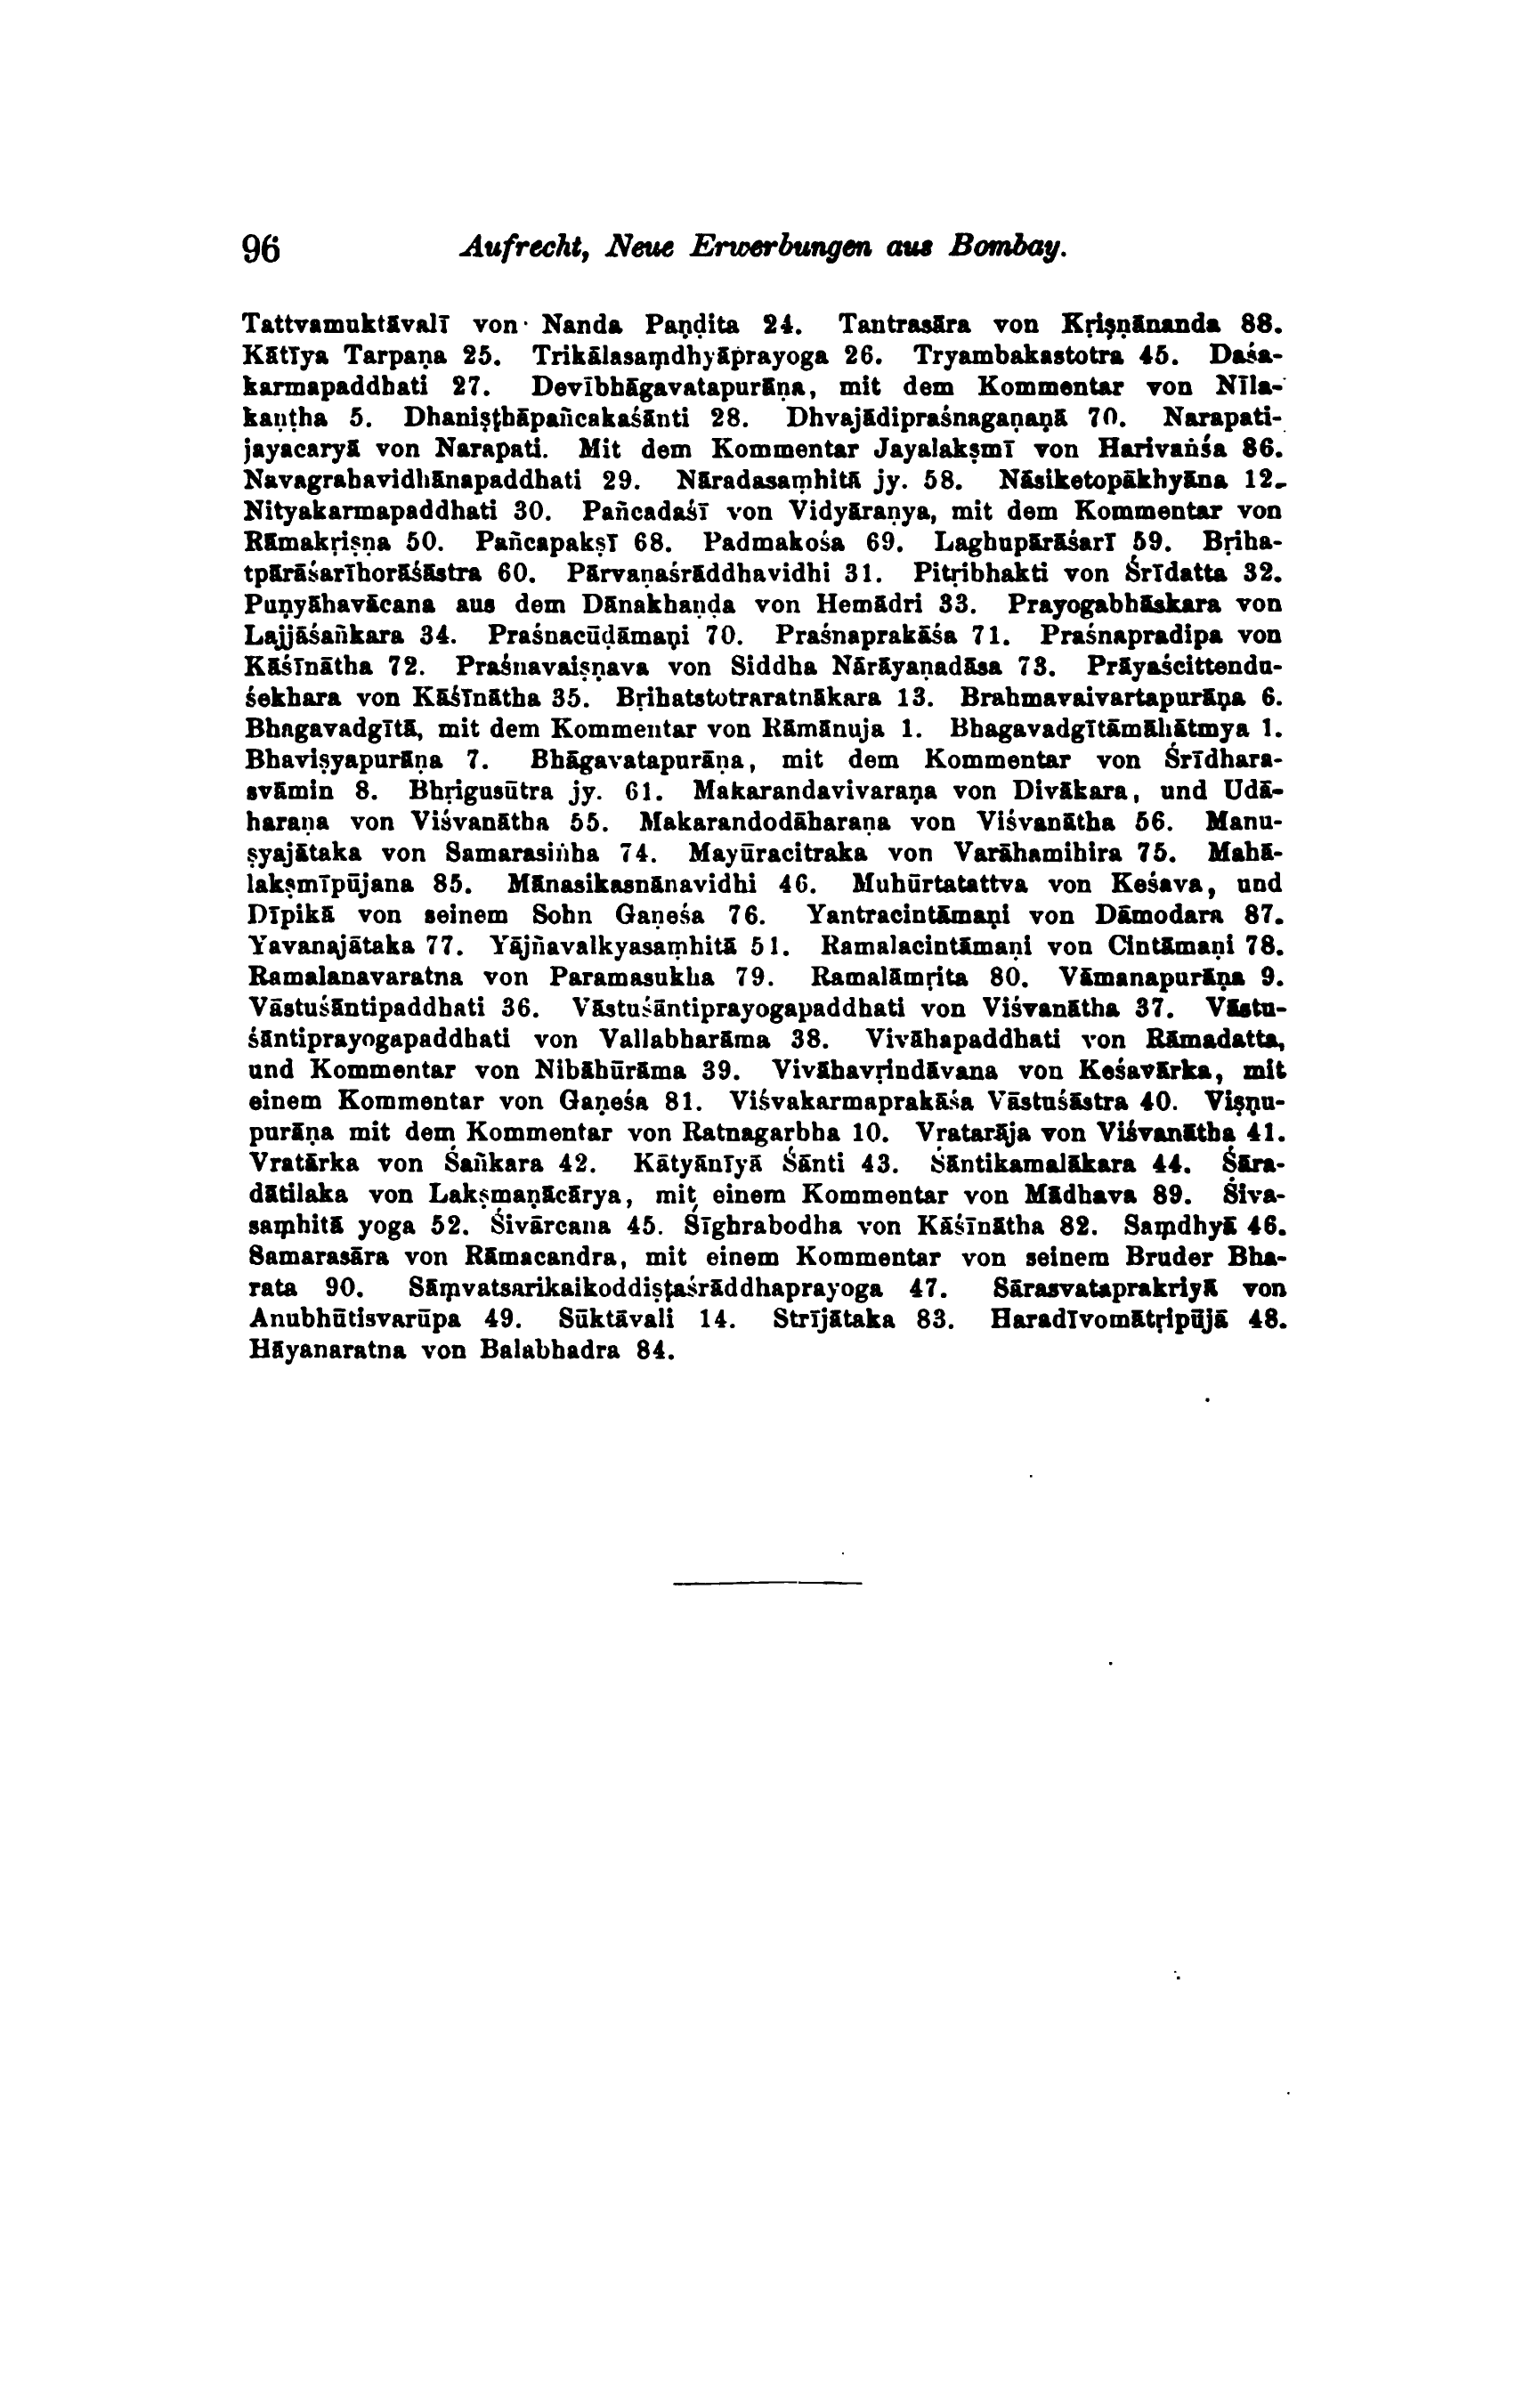 96 Aufrecht, Neue Erwerbungen aus Bombay.
Tattvamuktāvalī von Nanda Paṇḍita 24. Tantrasāra von Kṛiṣṇānanda 88.
Kātīya Tarpaṇa 25. Trikālasaṃdhyāprayoga 26. Tryambakastotra 45. Daśa-
karmapaddhati 27. Devībhāgavatapurāṇa, mit dem Kommentar von Nīla-
kaṇṭha 5. Dhaniṣṭhāpañcakaśānti 28. Dhvajādipraśnagaṇaṇā 70. Narapati-
jayacaryā von Narapati. Mit dem Kommentar Jayalakṣmī von Harivaṅśa 86.
Navagrahavidhānapaddhati 29. Nāradasaṃhitā jy. 58. Nāsiketopākhyāna 12.
Nityakarmapaddhati 30. Pañcadaśī von Vidyāraṇya, mit dem Kommentar von
Rāmakṛiṣṇa 50. Pañcapakṣī 68. Padmakośa 69. Laghupārāśarī 59. Bṛiha-
tpārāśarīhorāśāstra 60. Pārvaṇaśrāddhavidhi 31. Pitṛibhakti von Śrīdatta 32.
Puṇyāhavācana aus dem Dānakhaṇḍa von Hemādri 33. Prayogabhāskara von
Lajjāśañkara 34. Praśnacūḍāmaṇi 70. Praśnaprakāśa 71. Praśnapradipa von
Kāśīnātha 72. Praśnavaiṣṇava von Siddha Nārāyaṇadāsa 73. Prāyaścittendu-
śekhara von Kāśīnātha 35. Bṛihatstotraratnākara 13. Brahmavaivartapurāṇa 6.
Bhagavadgītā, mit dem Kommentar von Rāmānuja 1. Bhagavadgītāmāhātmya 1.
Bhaviṣyapurāṇa 7. Bhāgavatapurāṇa, mit dem Kommentar von Śrīdhara-
svāmin 8. Bhṛigusūtra jy. 61. Makarandavivaraṇa von Divākara, und Udā-
haraṇa von Viśvanātha 55. Makarandodāharaṇa von Viśvanātha 56. Manu-
ṣyajātaka von Samarasiṅha 74. Mayūracitraka von Varāhamihira 75. Mahā-
lakṣmīpūjana 85. Mānasikasnānavidhi 46. Muhūrtatattva von Keśava, und
Dīpikā von seinem Sohn Gaṇeśa 76. Yantracintāmaṇi von Dāmodara 87.
Yavanajātaka 77. Yājñavalkyasaṃhitā 51. Ramalacintāmaṇi von Cintāmaṇi 78.
Ramalanavaratna von Paramasukha 79. Ramalāmṛita 80. Vāmanapurāṇa 9.
Vāstuśāntipaddhati 36. Vāstuśāntiprayogapaddhati von Viśvanātha 37. Vāstu-
śāntiprayogapaddhati von Vallabharāma 38. Vivāhapaddhati von Rāmadatta,
und Kommentar von Nibāhūrāma 39. Vivāhavṛindāvana von Keśavārka, mit
einem Kommentar von Gaṇeśa 81. Viśvakarmaprakāśa Vāstuśāstra 40. Viṣṇu-
purāṇa mit dem Kommentar von Ratnagarbha 10. Vṛatarāja von Viśvanātha 41.
Vratārka von Śañkara 42. Kātyānīyā Śānti 43. Śāntikamalākara 44. Śāra-
dātilaka von Lakṣmaṇācārya, mit einem Kommentar von Mādhava 89. Śiva-
saṃhitā yoga 52. Śivārcana 45. Śīghrabodha von Kāśīnātha 82. Saṃdhyā 46.
Samarasāra von Rāmacandra, mit einem Kommentar von seinem Bruder Bha-
rata 90. Sāṃvatsarikaikoddiṣṭaśrāddhaprayoga 47. Sārasvataprakriyā von
Anubhūtisvarūpa 49. Sūktāvali 14. Strījātaka 83. Haradīvomātṛipūjā 48.
Hāyanaratna von Balabhadra 84.